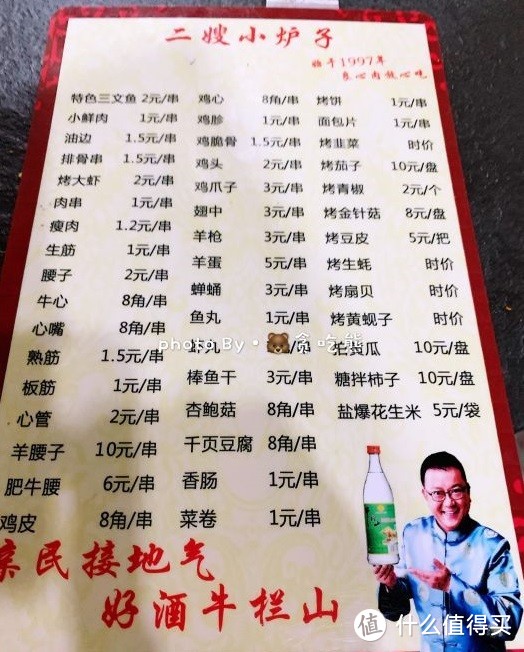 二嫂小炉子
始于1997年
良心肉放心吃
特色三文鱼 2元/串
小鲜肉 1元/串
油边 1.5元/串
排骨串 1.5元/串
烤大虾 2元/串
肉串 1元/串
瘦肉 1.2元/串
生筋 1元/串
腰子 2元/串
牛心 8角/串
心嘴 8角/串
熟筋 1.5元/串
板筋 1元/串
心管 2元/串
羊腰子 10元/串
肥牛腰 6元/串
鸡皮 8角/串
鸡心 8角/串
鸡胗 1元/串
鸡脆骨 1.5元/串
鸡头 2元/串
鸡爪子 3元/串
翅中 3元/串
羊枪 3元/串
羊蛋 5元/串
蝉蛹 3元/串
鱼丸 1元/串
丸 元/串
棒鱼干 3元/串
杏鲍菇 8角/串
千页豆腐 8角/串
香肠 1元/串
菜卷 1元/串
烤饼 1元/串
面包片 1元/串
烤韭菜 时价
烤茄子 10元/盘
烤青椒 2元/个
烤金针菇 8元/盘
烤豆皮 5元/把
烤生蚝 时价
烤扇贝 时价
烤黄蚬子 时价
拍黄瓜 10元/盘
糖拌柿子 10元/盘
盐爆花生米 5元/袋
photo By·贪吃熊
亲民接地气
好酒牛栏山
值 什么值得买